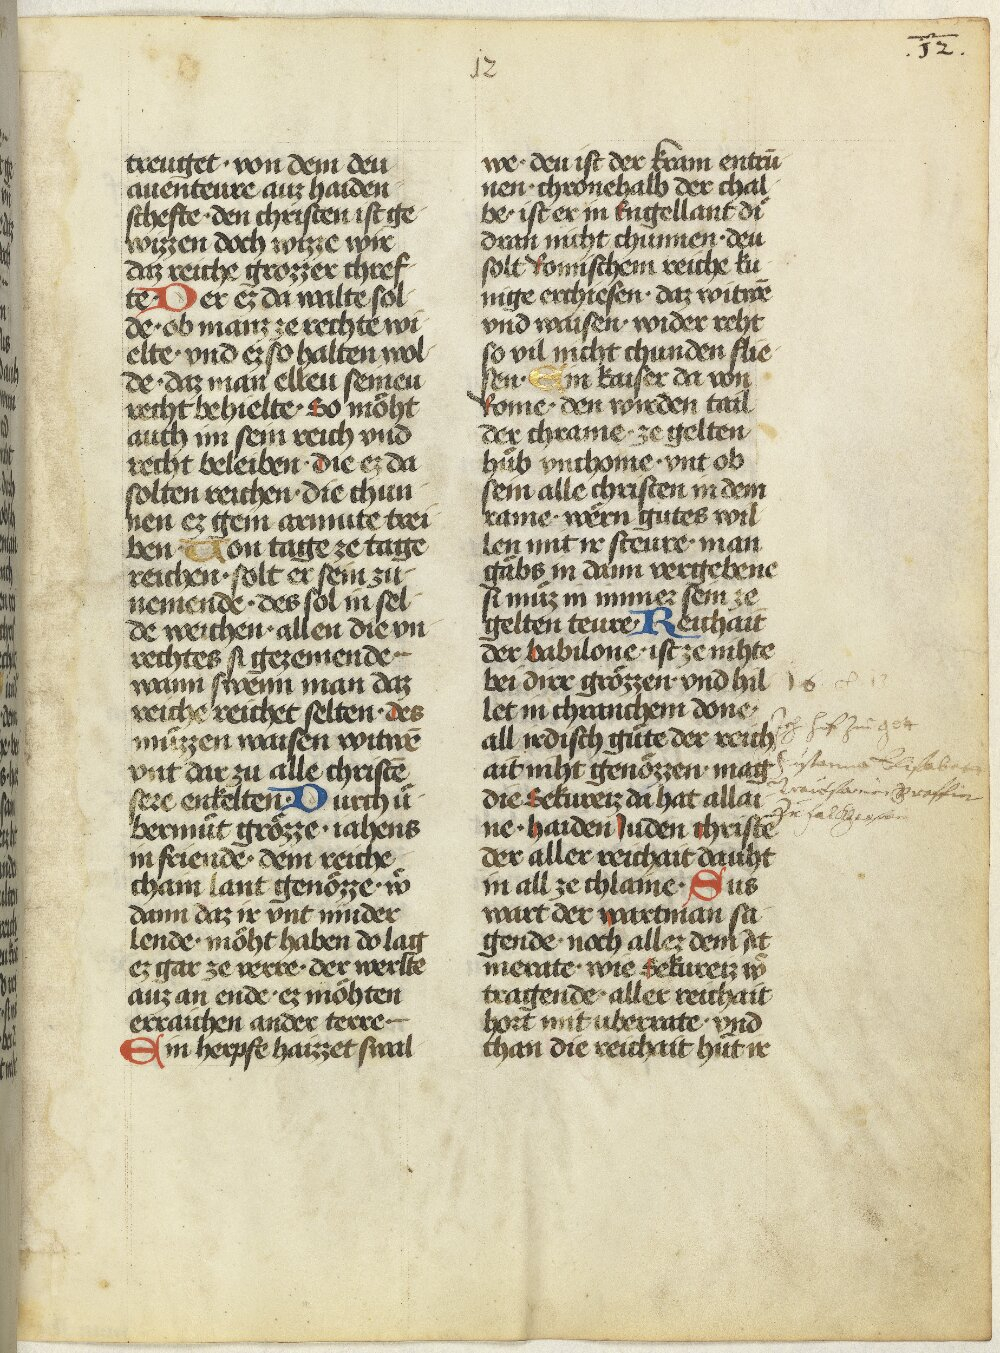 12
.12.
treuget · von dem deu
auenteure auz haiden
schefte · den christen ist ge
wizzen doch wizze wir
daz reiche grozzer chref
te · Der ez da walte sol
de · ob manz ze rechte wi
elte · vnd ez so halten wol
de · daz man elleu seineu
recht behielte · So möht
auch im sein reich vnd
recht beleiben · die ez da
solten reichen · die chun
nen ez gein armute trei
ben · Von tage ze tage
reichen · solt er sein zu
nemende · des sol in sel
de weichen · allen die vn
rechtes si gezemende ·
wann swenn man daz
reiche reichet selten · des
müzzen waisen witwē
vnt dar zu alle christē
sere enkelten · Durch ü
bermüt grözze · iahens
in friende · dem reiche
chain lant genözze · wͦ
dann daz ir vnt minder
lende · möht haben do lag
ez gar ze verre · der werlte
auz an ende · ez möhten
erraichen ander terre ·
Ein herpfe haizzet swal
we · deu ist der kram entrū
nen · chronehalb der chal
be · ist er in Engellant di
dran niht chunnen · deu
solt Romischem reiche ku
nige erchiesen · daz witwē
vnd waisen · wider reht
so vil nicht chunden flie
sen · Ein kaiser da von
Rome · den wurden tail
der chrame · ze gelten
hüb vnchome · vnt ob
sein alle christen in dem
rame · wern gutes wil
len mit ir steure · man
gäbs in dann vergebene
si müz in immer sein ze
gelten teure · Reichait
der babilone · ist ze nihte
bei dirr grözzen · vnd hil
let in chranchem done ·
all irdisch güte der reich
ait niht genözzen · mag
die Sekureiz da hat allai
ne · haiden Juden christē
der aller reichait dauht
in all ze chlaine · Sus
wart der wartman sa
gende · noch allez dem Ad
merate · wie Sekureiz wͦ
tragende · aller reichait
hort mit uberrate · vnd
chan die reichait hüt ir